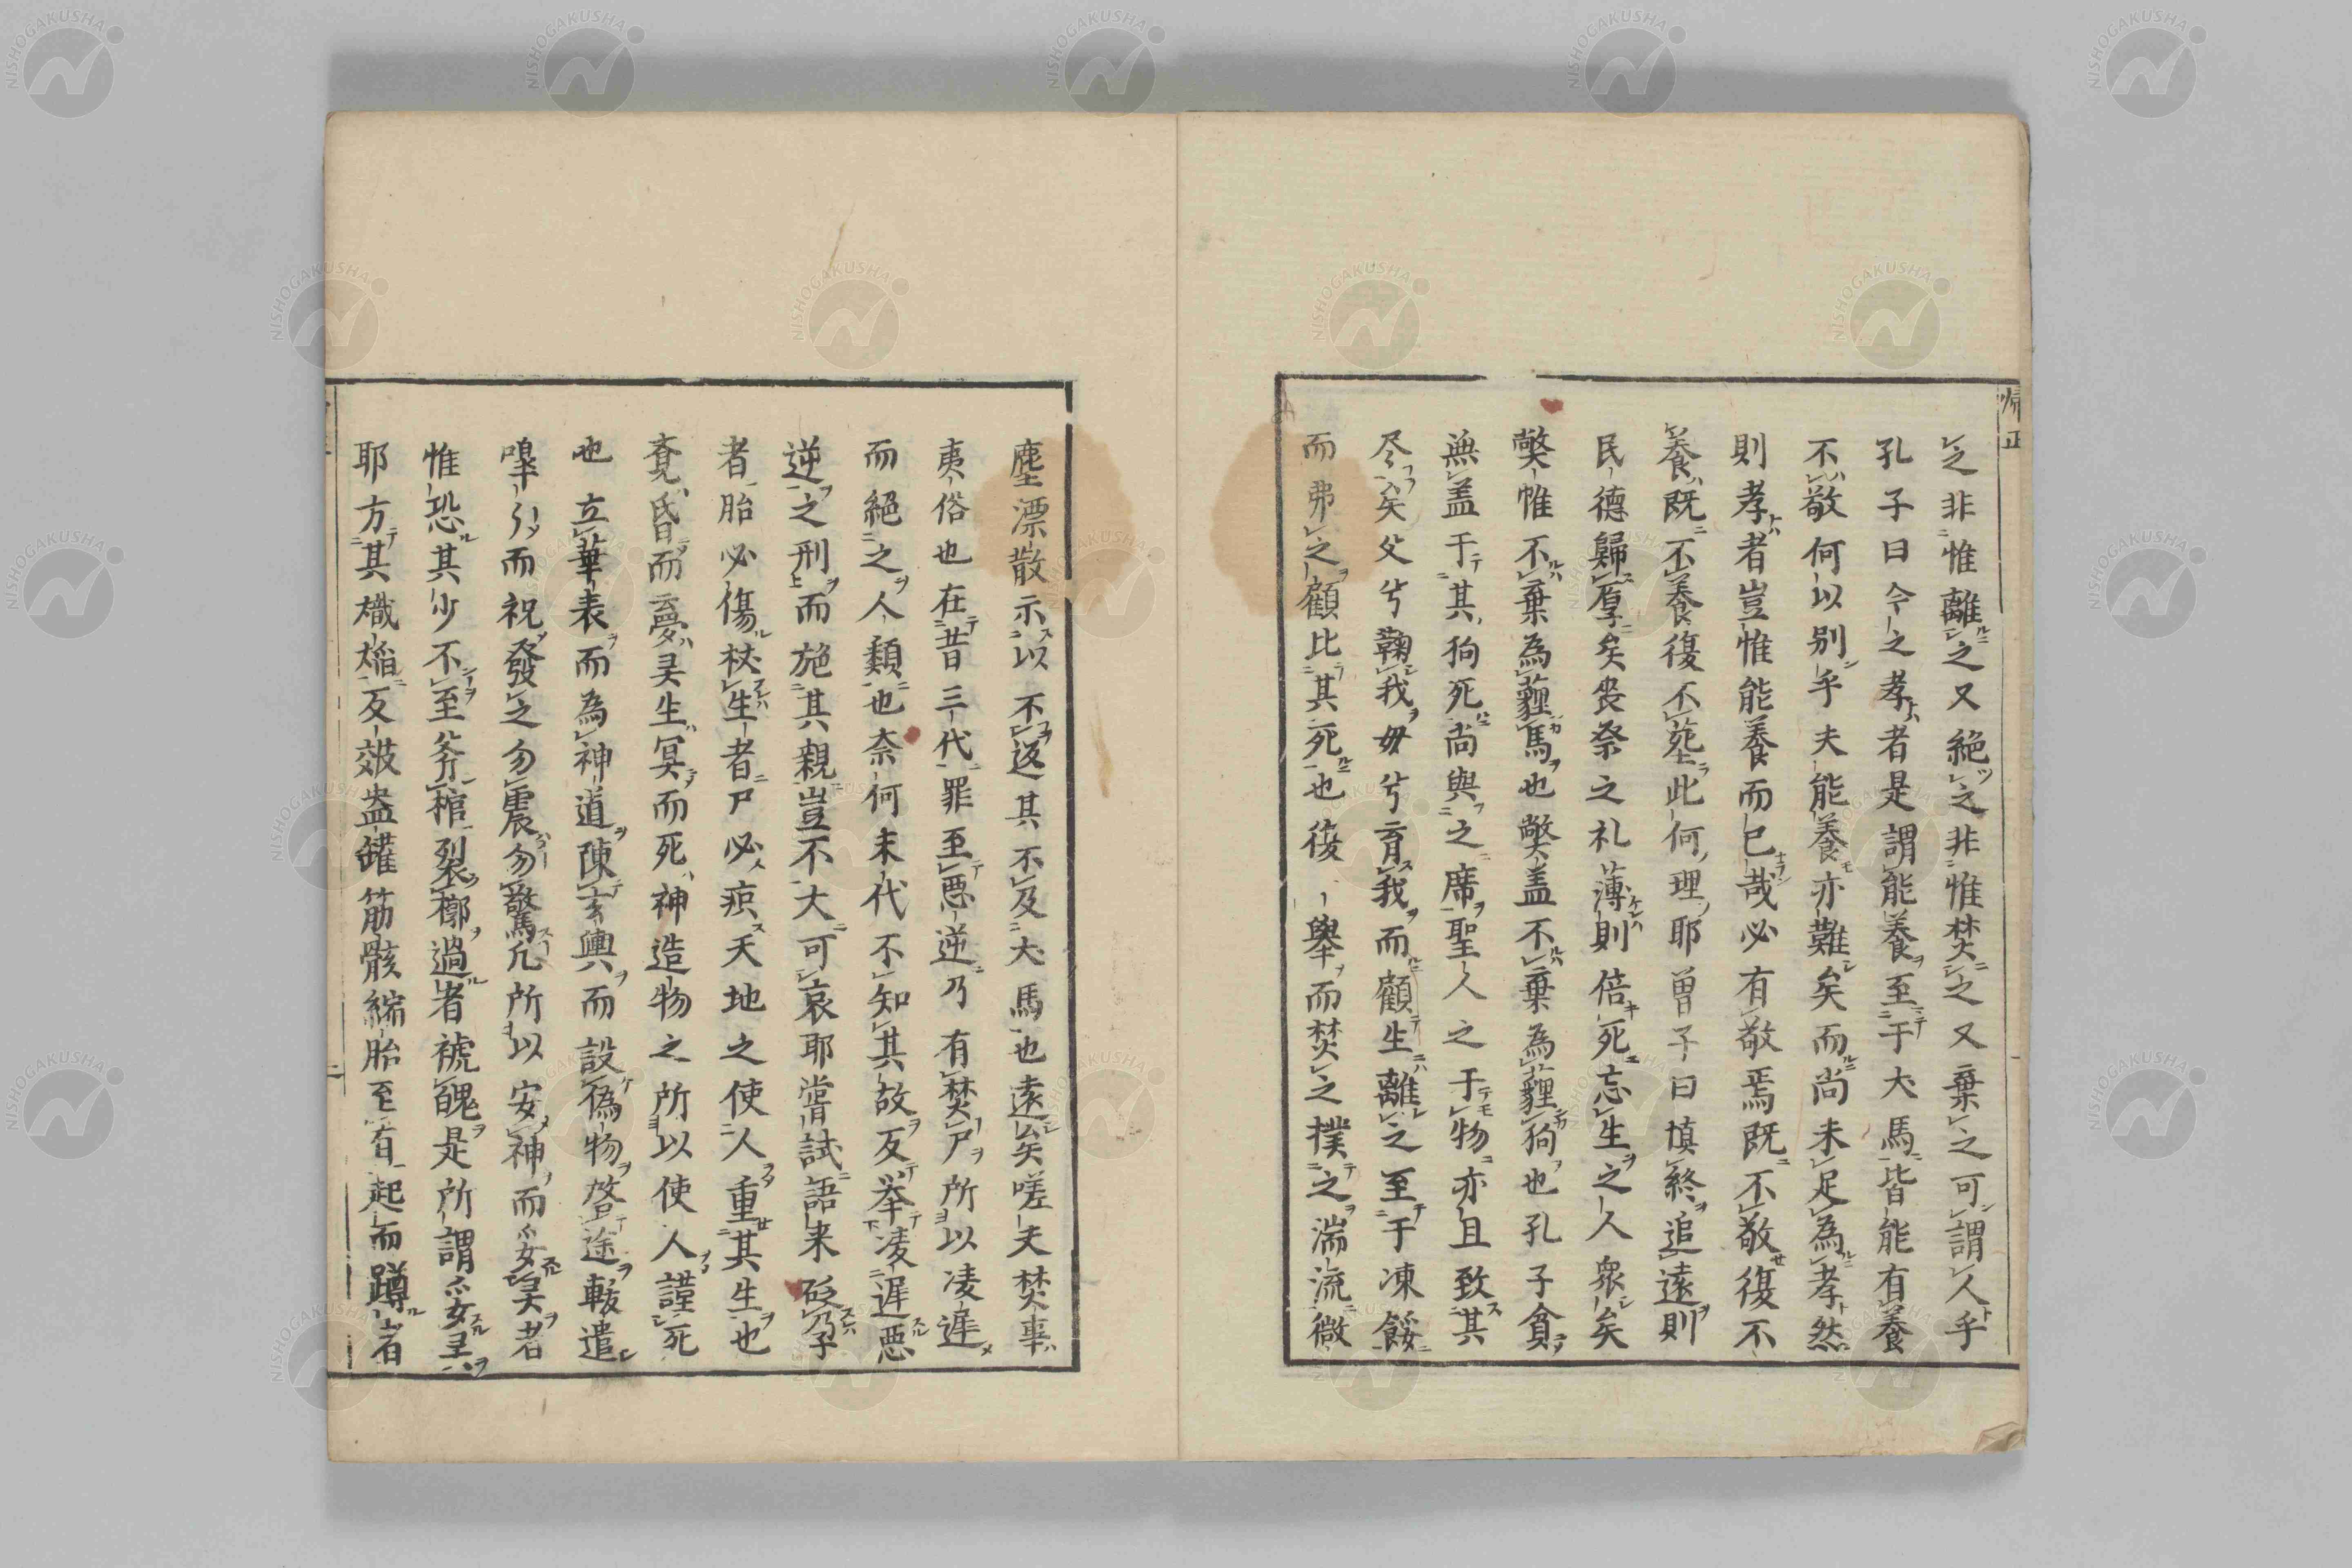 之非惟離之又絕之非惟焚之又棄之可謂人乎
孔子曰今之孝者是謂能養至于犬馬皆能有養
不敬何以别乎夫能養亦難矣而尚未足為孝然
則孝者豈惟能養而已哉必有敬焉既不敬復不
養既不養復不葬此何理耶曾子曰慎終追遠則
民德歸厚矣喪祭之礼薄則倍死忘生之人衆矣
獘惟不棄為薶馬也獘盖不棄為薶狗也孔子貧
無盖于其狗死尚與之席聖人之于物亦且致其
尽矣父兮鞠我毋兮育我而顧生離之至于凍餒
而弗之顧比其死也復舉而焚之撲之湍流微
塵漂散示以不返其不及犬馬也遠矣嗟夫焚事
夷俗也在昔三代罪至惡逆乃有焚尸所以凌遲
而絕之人類也奈何末代不知其故反举凌遲惡
逆之刑而施其親豈不大可哀耶嘗試語来砭乃子
者胎必傷杖生者尸必痕天地之使人重其生也
昏而夣生冥而死神造物之所以使人謹死
也立華表而為神道陳玄輿而設偽物途輀遣
而祝發之勿震勿驚凢所以安神而者
惟恐其少不至斧棺裂槨過者褫魄是所謂
耶方其熾焰反盎罐筋骸縮胎至有起而蹲者
帰正
二
NISHOGAKUSHA